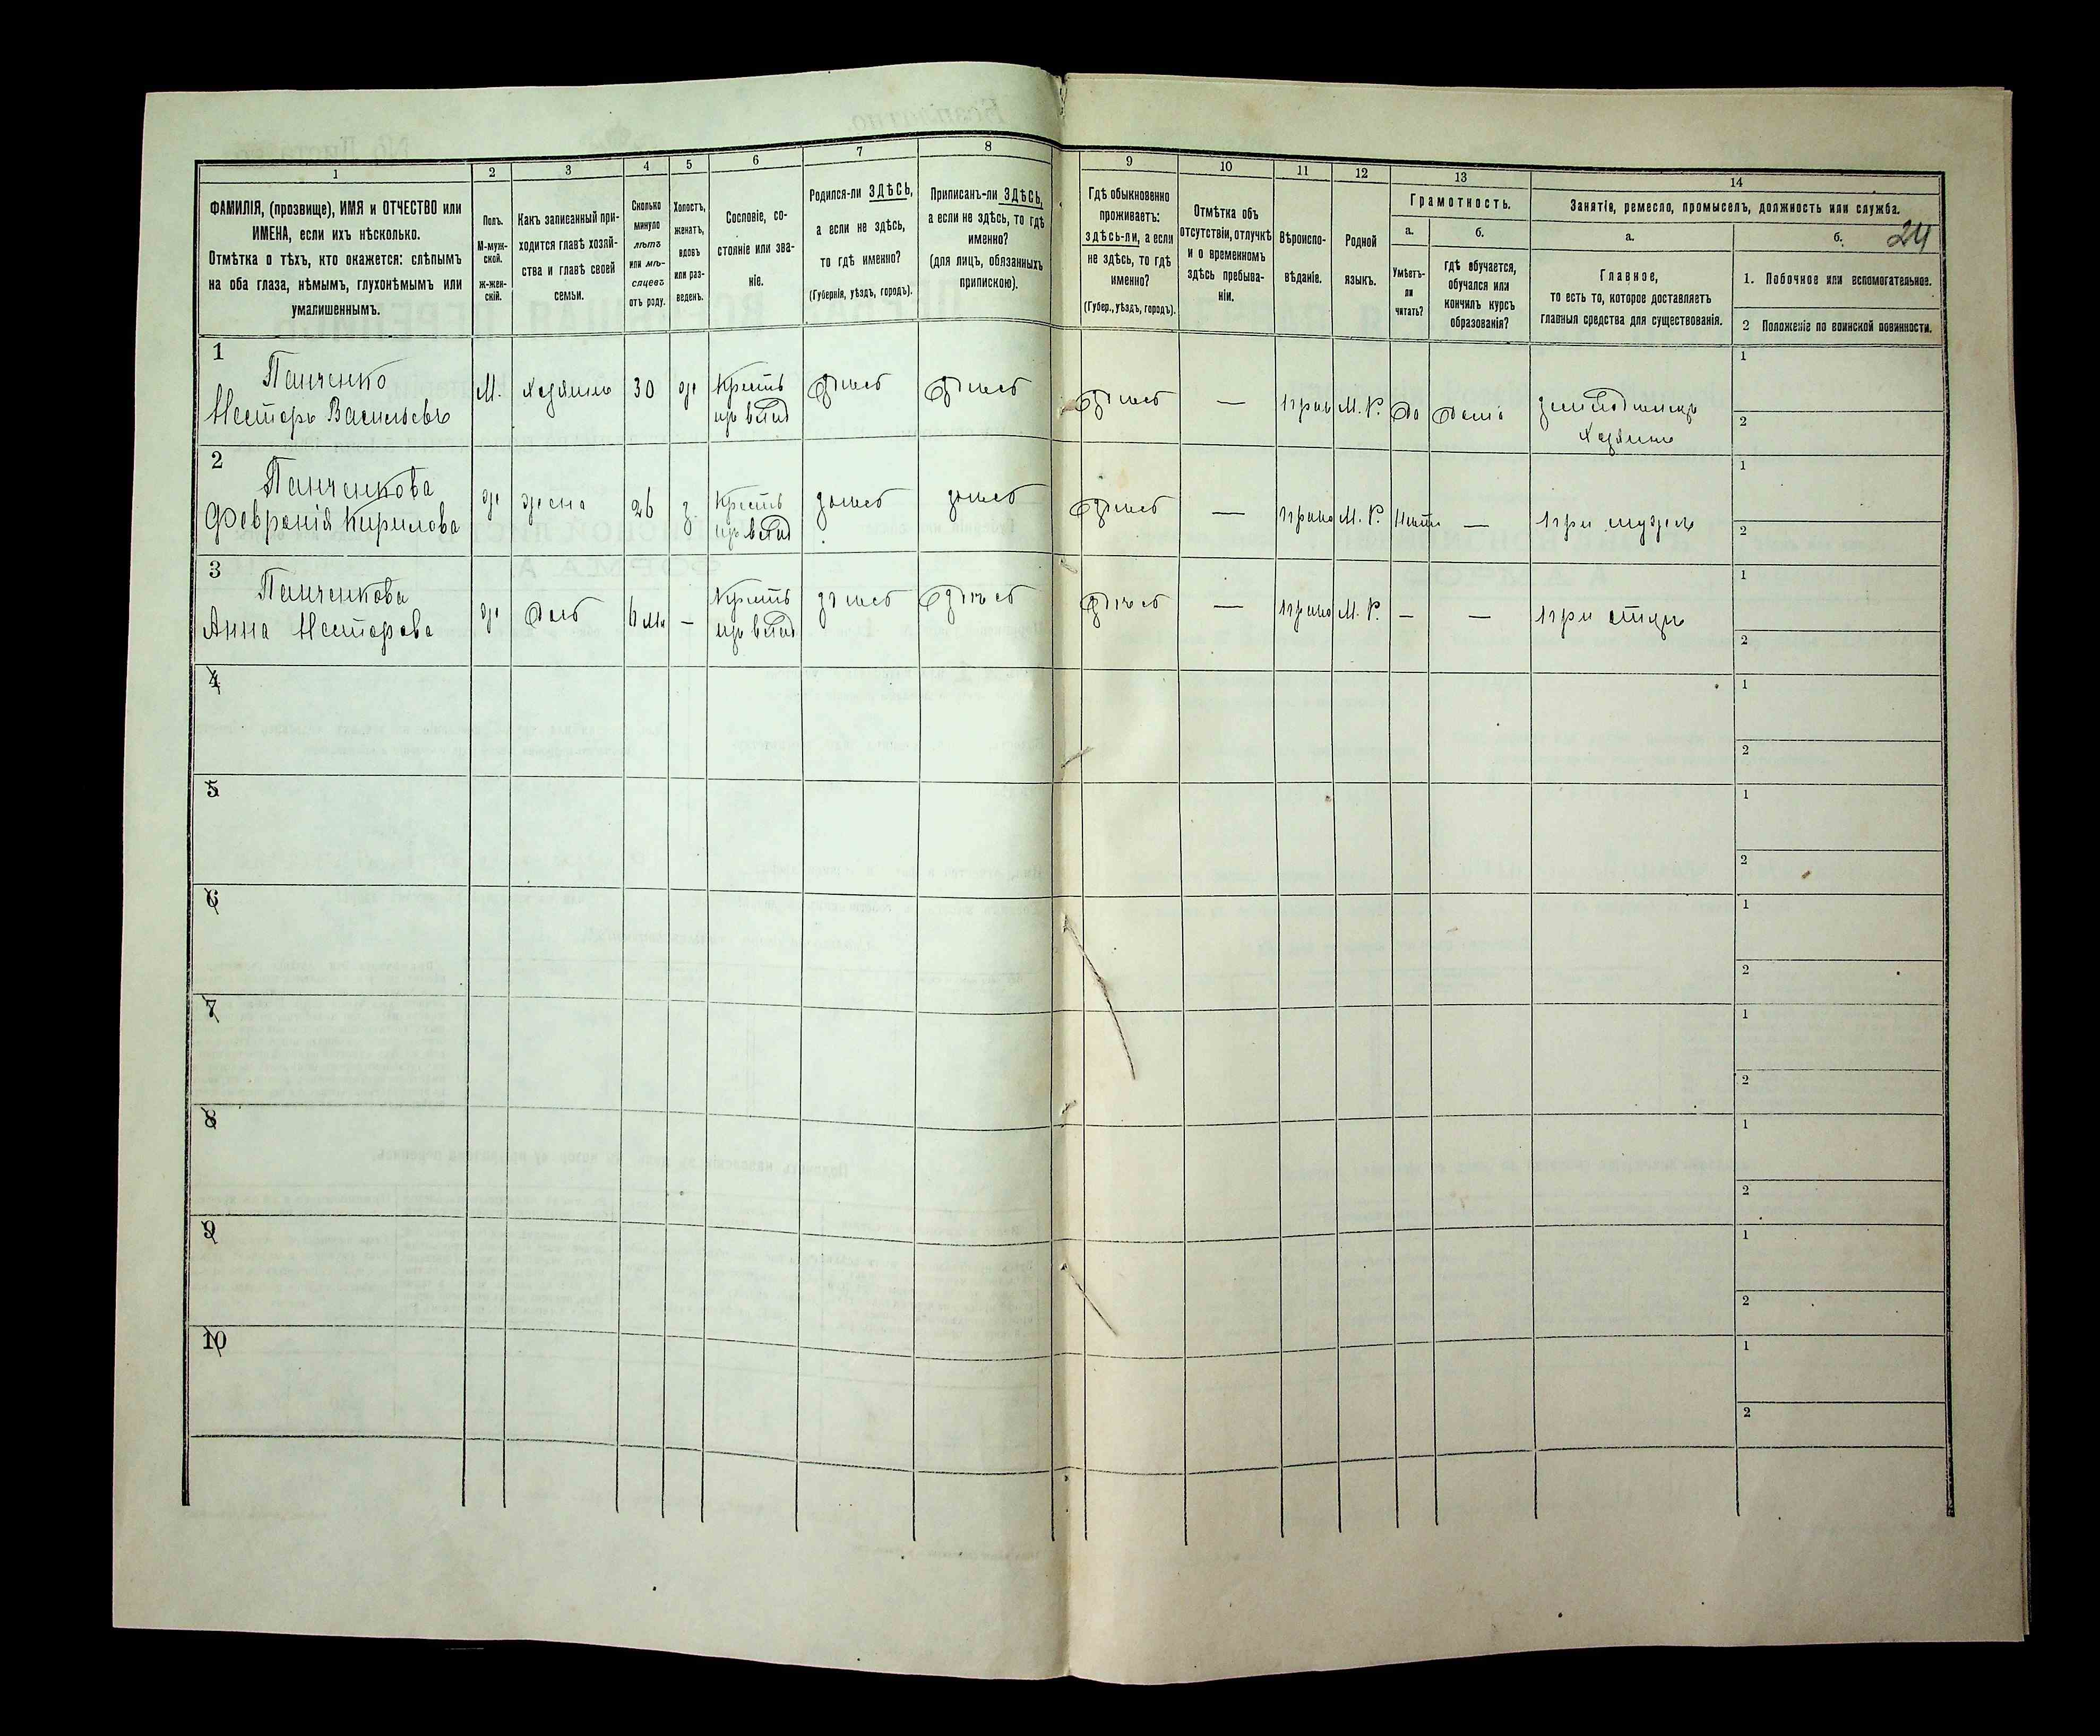 1
2
3
4
5
6
7
8
9
10
11
12
13
14
ФАМИЛІЯ, (прозвище), ИМЯ и ОТЧЕСТВО или
ИМЕНА, если ихъ нѣсколько.
Отмѣтка о тѣхъ, кто окажется: слѣпымъ
на оба глаза, нѣмымъ, глухонѣмымъ или
умалишеннымъ.
Полъ.
М-муж-
ской.
Ж-жен-
скій.
Какъ записанный при-
ходится главѣ хозяй-
ства и главѣ своей
семьи.
Сколько
минуло
лѣтъ
или мѣ-
сяцевъ
отъ роду.
Холостъ,
женатъ,
вдовъ
или раз-
веденъ.
Сословіе, со-
стояніе или зва-
ніе.
Родился-ли ЗДѢСЬ,
а если не здѣсь,
то гдѣ именно?
(Губернія, уѣздъ, городъ).
Приписанъ-ли ЗДѢСЬ,
а если не здѣсь, то гдѣ
именно?
(для лицъ, обязанныхъ
припискою).
Гдѣ обыкновенно
проживаетъ:
здѣсь-ли, а если
не здѣсь, то гдѣ
именно?
(Губер., уѣздъ, городъ).
Отмѣтка объ
отсутствіи, отлучкѣ
и о временномъ
здѣсь пребыва-
ніи.
Вѣроиспо-
вѣданіе.
Родной
языкъ.
Грамотность.
а.
Умѣетъ-
ли
читать?
б.
гдѣ обучается,
обучался или
кончилъ курсъ
образованія?
Занятія, ремесло, промыселъ, должность или служба.
а.
Главное,
то есть то, которое доставляетъ
главныя средства для существованія.
б.
24
1. Побочное или вспомогательное.
2 Положеніе по воинской повинности.
1
Панченко
Несторъ Васильевъ
М.
хозяинъ
30
ж
Крестьян
изъ влад
здѣсь
здѣсь
здѣсь
—
прав
М. Р.
Да
Дома
земледѣлецъ
хозяинъ
1
2
2
Панченкова
Февронія Кирилова
ж
жена
26
з.
Крестьян
изъ влад
здѣсь
здѣсь
здѣсь
—
право
М. Р.
Нѣтъ
—
при мужѣ
1
2
3
Панченкова
Анна Несторова
ж
Дочь
6 мѣ
—
Крестьян
изъ влад
здѣсь
здѣсь
здѣсь
—
право
М. Р.
—
—
при отцѣ
1
2
4
1
2
5
1
2
6
1
2
7
1
2
8
1
2
9
1
2
10
1
2